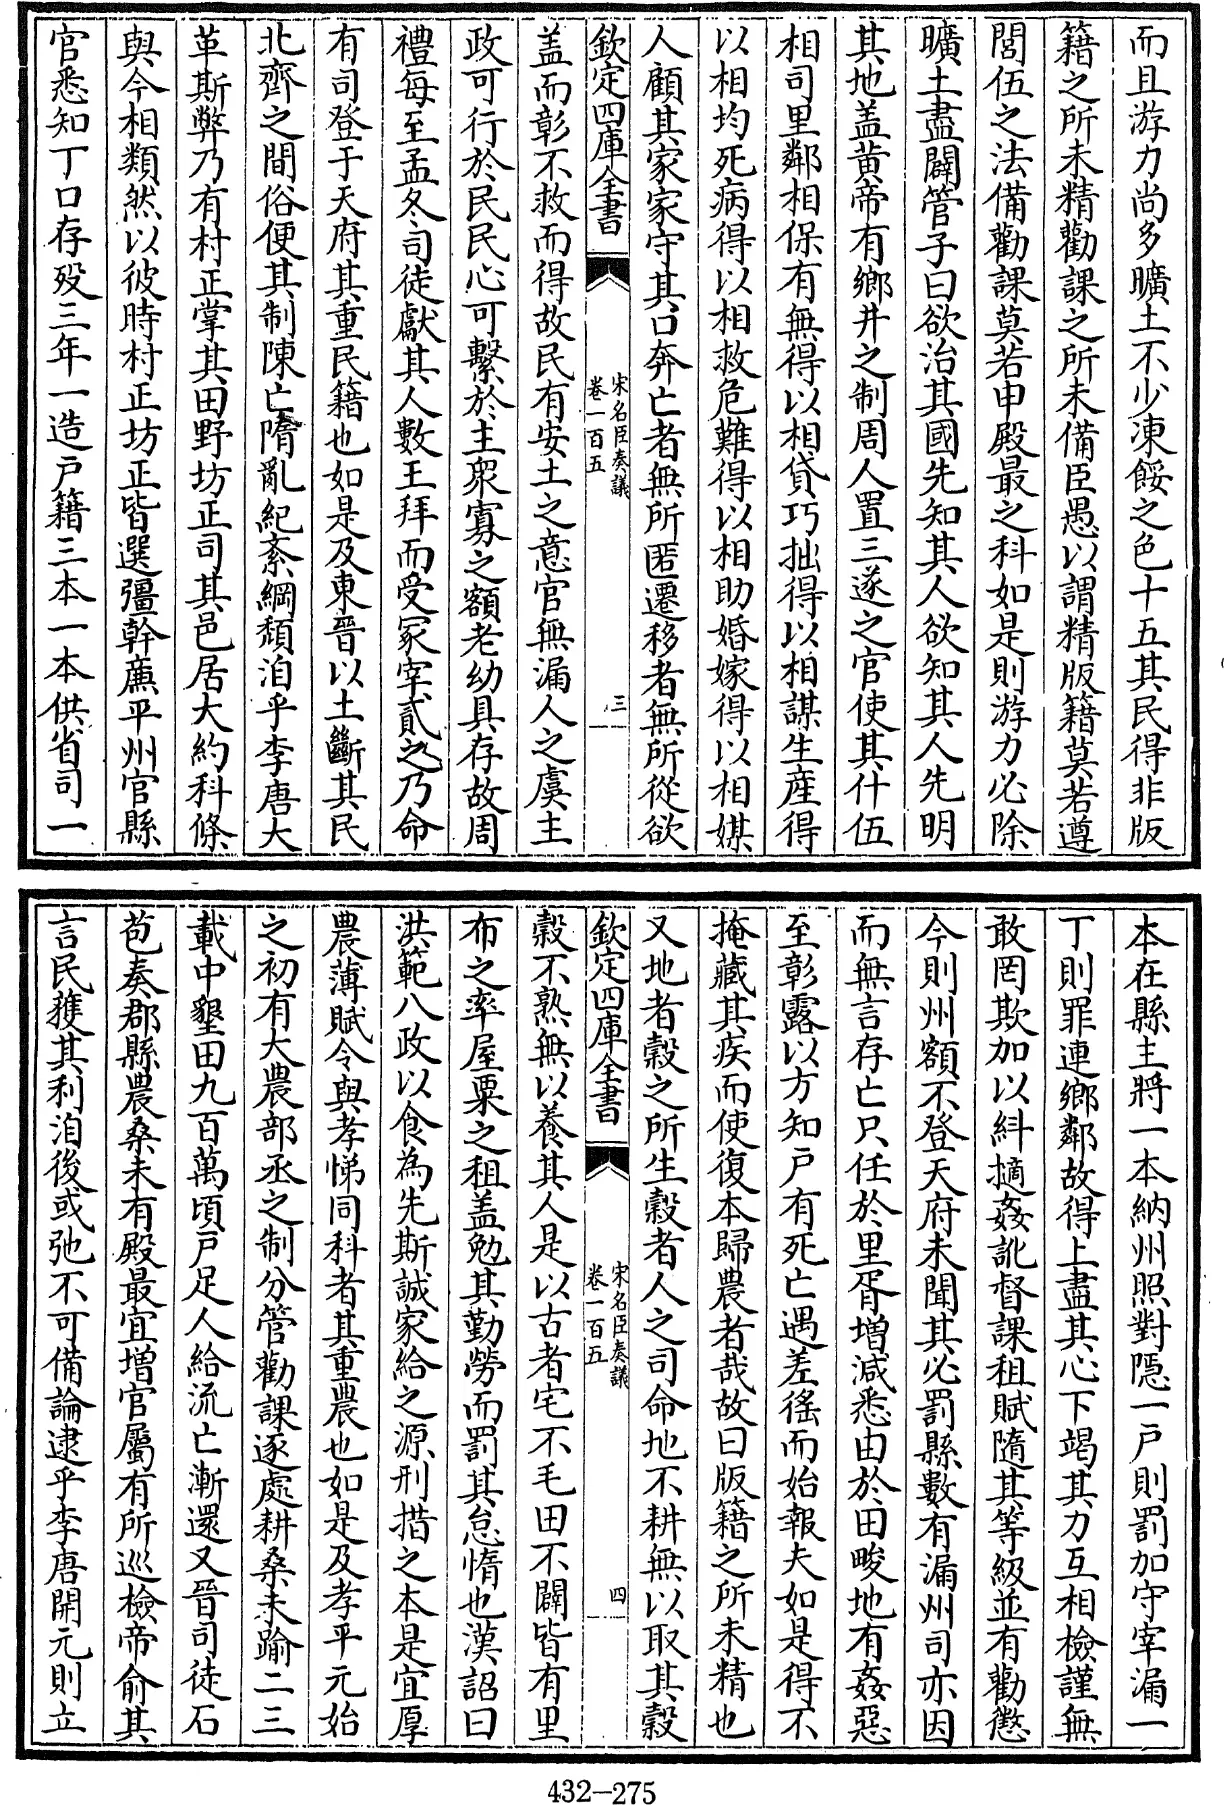 而且游力尚多曠土不少凍餒之色十五其民得非版
籍之所未精勸課之所未備臣愚以謂精版籍莫若遵
閭伍之法備勸課莫若申殿最之科如是則游力必除
曠土盡闢管子曰欲治其國先知其人欲知其人先明
其地盖黄帝有鄉井之制周人置三遂之官使其什伍
相司里鄰相保有無得以相貸巧拙得以相謀生産得
以相均死病得以相救危難得以相助婚嫁得以相媒
人顧其家家守其口奔亡者無所匿遷移者無所從欲
欽定四庫全書
宋名臣奏議
卷一百五
三
盖而彰不救而得故民有安土之意官無漏人之虞主
政可行於民民心可繫於主衆寡之額老幼具存故周
禮每至孟冬司徒獻其人數王拜而受冢宰貳之乃命
有司登于天府其重民籍也如是及東晉以土斷其民
北齊之間俗便其制陳亡隋亂紀紊綱頽洎乎李唐大
革斯弊乃有村正掌其田野坊正司其邑居大約科條
與今相類然以彼時村正坊正皆選彊幹亷平州官縣
官悉知丁口存殁三年一造戸籍三本一本供省司一
本在縣主將一本納州照對隠一戸則罰加守宰漏一
丁則罪連鄉鄰故得上盡其心下竭其力互相檢謹無
敢罔欺加以糾擿姦訛督課租賦隨其等級並有勸懲
今則州額不登天府未聞其必罰縣數有漏州司亦因
而無言存亡只任於里胥増減悉由於田畯地有姦惡
至彰露以方知戸有死亡遇差徭而始報夫如是得不
掩藏其疾而使復本歸農者哉故曰版籍之所未精也
又地者糓之所生糓者人之司命地不耕無以取其糓
欽定四庫全書
宋名臣奏議
卷一百五
四
糓不熟無以養其人是以古者宅不毛田不闢皆有里
布之率屋粟之租盖勉其勤勞而罰其怠惰也漢詔曰
洪範八政以食為先斯誠家給之源刑措之本是宜厚
農薄賦令與孝悌同科者其重農也如是及孝平元始
之初有大農部丞之制分管勸課逐處耕桑未踰二三
載中墾田九百萬頃戸足人給流亡漸還又晉司徒石
苞奏郡縣農桑未有殿最宜増官屬有所巡檢帝俞其
言民獲其利洎後或弛不可備論逮乎李唐開元則立
432-275